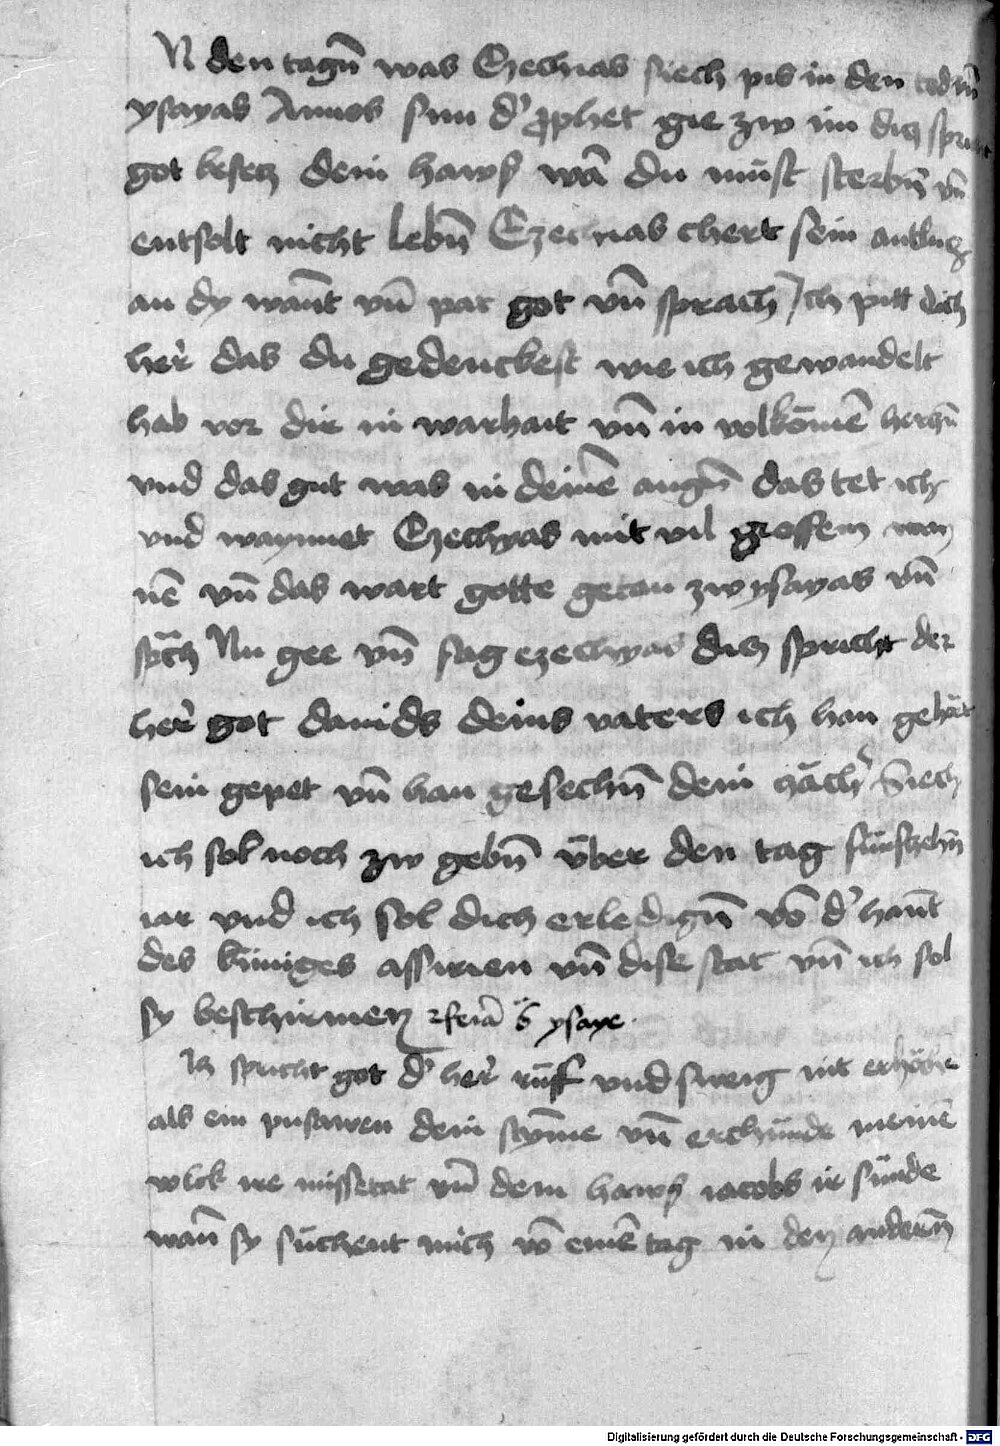 N den tagñ was Ezechias siech pis in den tod uñ
ysayas Ammos sun d' ꝓphet gie zw im dicz spricht
got besecz dein hawß wā du müst sterbñ vñ
entsolt nicht lebñ Ezechias chert sein antlucz
an dy want vñ pat got vñ sprach Ich pitt dich
her das du gedenckest wie ich gewandelt
hab vor dir in warhait vñ in volkōmē herczñ
vnd das gut was in deinē augñ das tet ich
vnd waynnet Ezechyas mit vil grossem way
nē vñ das wart gotte getan zw ysayas vñ
sp̄ch Nu gee vñ sag ezechyas dicz spricht der
her got dauids deins vaters ich han gehört
sein gepet vñ han gesechñ dein zäch' Siech
ich sol noch zw gebñ über den tag fünfzehñ
iar vnd ich sol dich erledigñ vō d' hant
des küniges assirien vñ dise stat vñ ich sol
sy beschirmen ysaye
Icz spricht got d' her rüff vnd sweig nit erhöhe
als ein pusawen dein stȳme vñ erchünde meinē
volck ire missetat vñ dem hawß iacobs ir sünde
wañ sy süchent mich vō einē tag in den anderñ
Digitalisierung gefördert durch die Deutsche Forschungsgemeinschaft - DFG